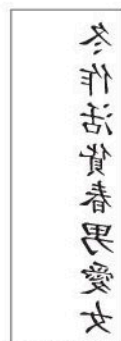 冬作活貨春男愛女